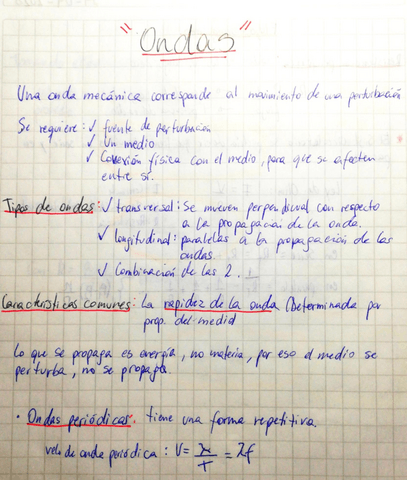 "Ondas"
Una onda mecánica corresponde al movimiento de una perturbación
Se requiere: ✓ fuente de perturbación
✓ Un medio
✓ Conexión física con el medio, para que se afecten
entre sí.
Tipos de ondas: ✓ transversal: Se mueven perpendicual con respecto
a la propagación de la onda.
✓ longitudinal: paralelas a la propagación de las
ondas
✓ Combinación de las 2.
Características comunes: La rapidez de la onda (Determinada por
prop. del medio)
Lo que se propaga es energía, no materia, por eso el medio se
perturba, no se propaga.
· Ondas periódicas. tiene una forma repetitiva.
velo de onda periódica: V = λ/T = λf